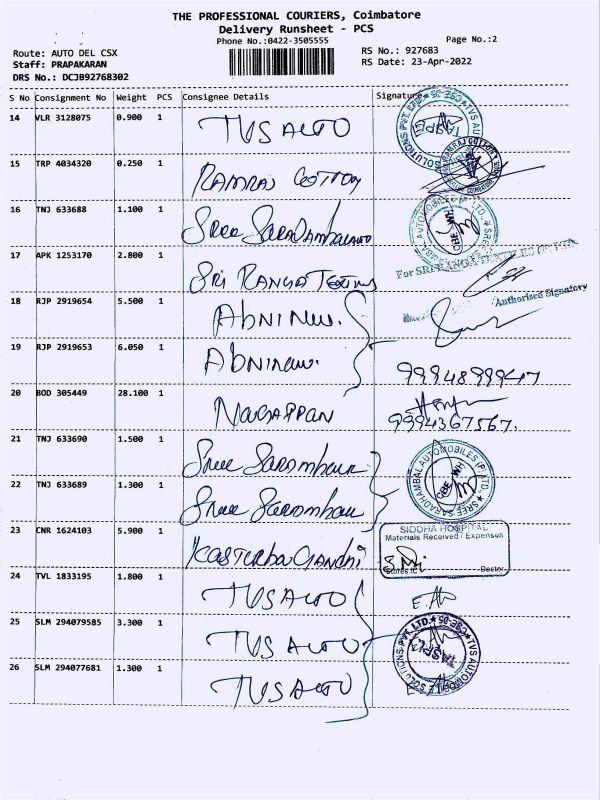 THE PROFESSIONAL COURIERS, Coimbatore
Delivery Runsheet - PCS
Phone No.:0422-3505555
Page No.:2
Route: AUTO DEL CSX
Staff: PRAPAKARAN
DRS No.: DCJB92768302
RS No.: 927683
RS Date: 23-Apr-2022
S No Consignment No Weight PCS Consignee Details Signature
14 VLR 3128075 0.900 1 TVS AUTO
15 TRP 4034320 0.250 1 RAMRAJ COTTON
16 TNJ 633688 1.100 1 Sree
17 APK 1253170 2.800 1 SRI RANGA
For SRI RANGA
Authorised Signatory
18 RJP 2919654 5.500 1
19 RJP 2919653 6.050 1
20 BOD 305449 28.100 1 NAGAPPAN
9994367567.
21 TNJ 633690 1.500 1 Sree
22 TNJ 633689 1.300 1 Sree
SREE SARADHAMBAL AUTOMOBILES (P) LTD.
CBE WH
23 CNR 1624103 5.900 1 Kasturba Gandhi
SIDDHA HOSPITAL
Materials Received / Expenses
Stores IC Doctor
24 TVL 1833195 1.800 1 TVS AUTO
25 SLM 294079585 3.300 1 TVS AUTO
26 SLM 294077681 1.300 1 TVS AUTO
TVS AUTOMOBILE SOLUTIONS PVT. LTD. CBE-05